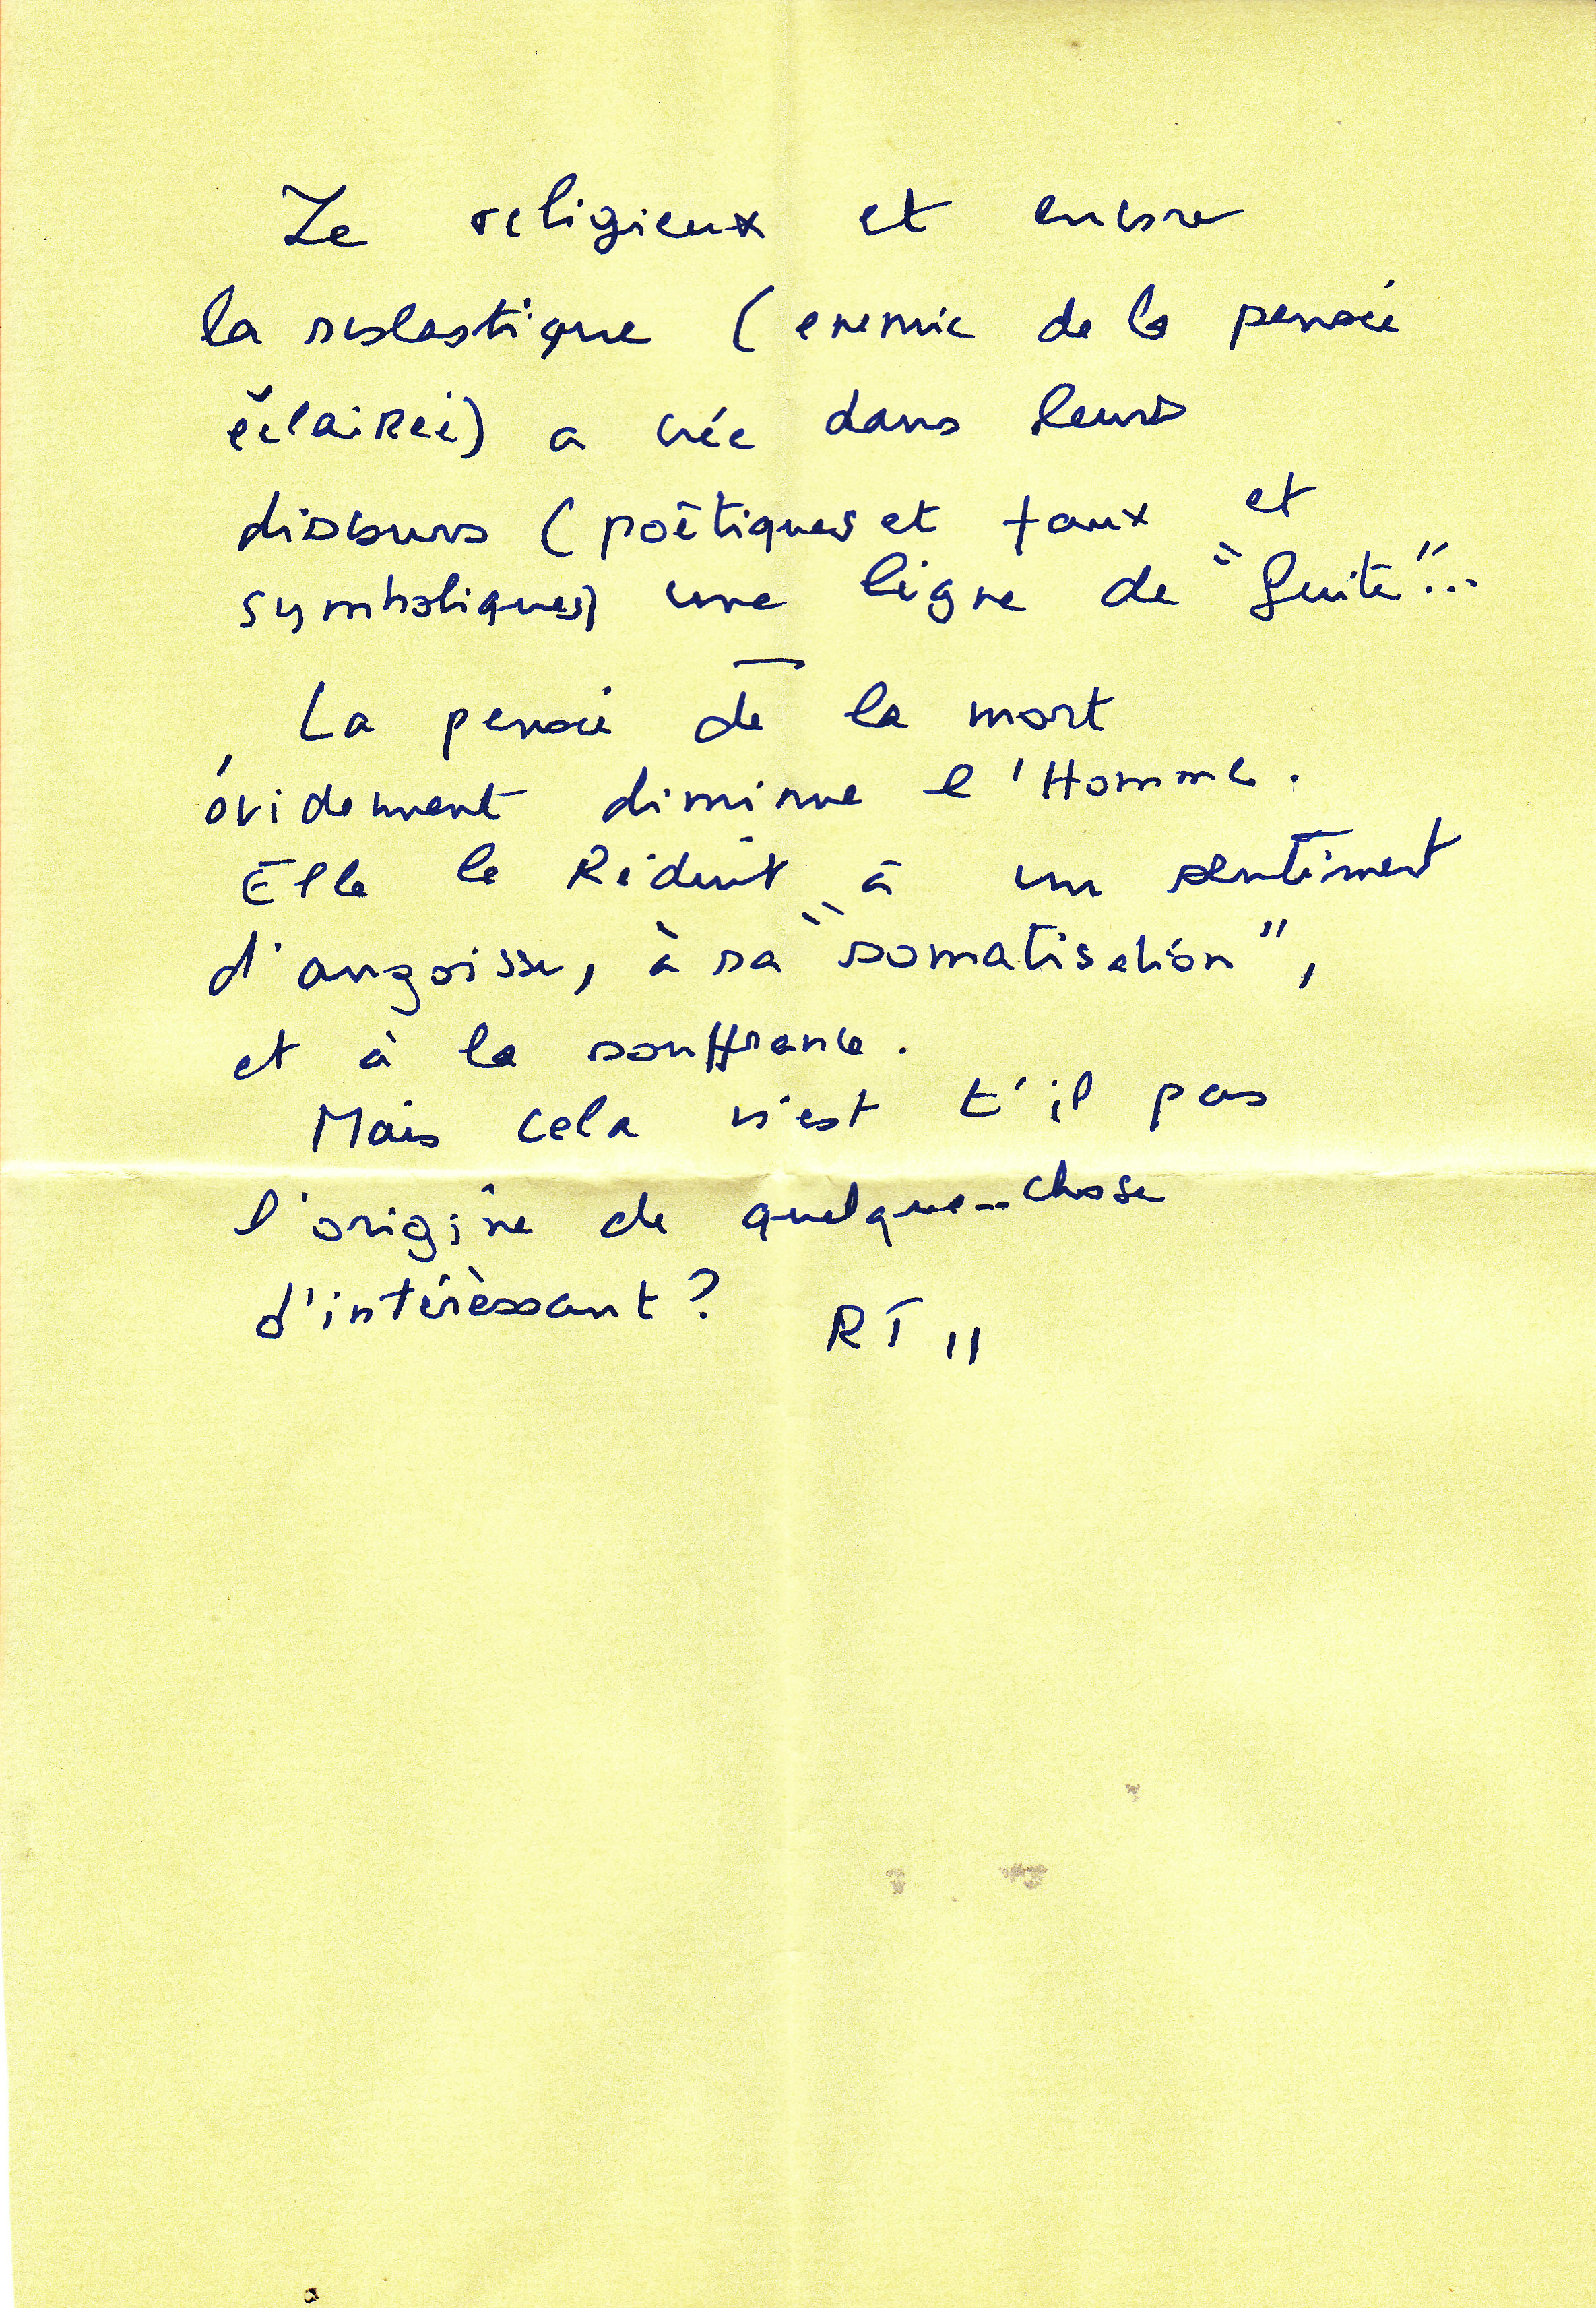 Le religieux et encore
la scolastique (enemie de la pensée
éclairée) a crée dans leurs
discours (poétiques et faux et
symboliques) une ligne de "fuite"...
La pensée de la mort
évidemment diminue l'Homme.
Elle le Réduit à un sentiment
d'angoisse, à sa "somatisation",
et à la souffrance.
Mais cela n'est t'il pas
l'origine de quelque-chose
d'intérèssant? RT II